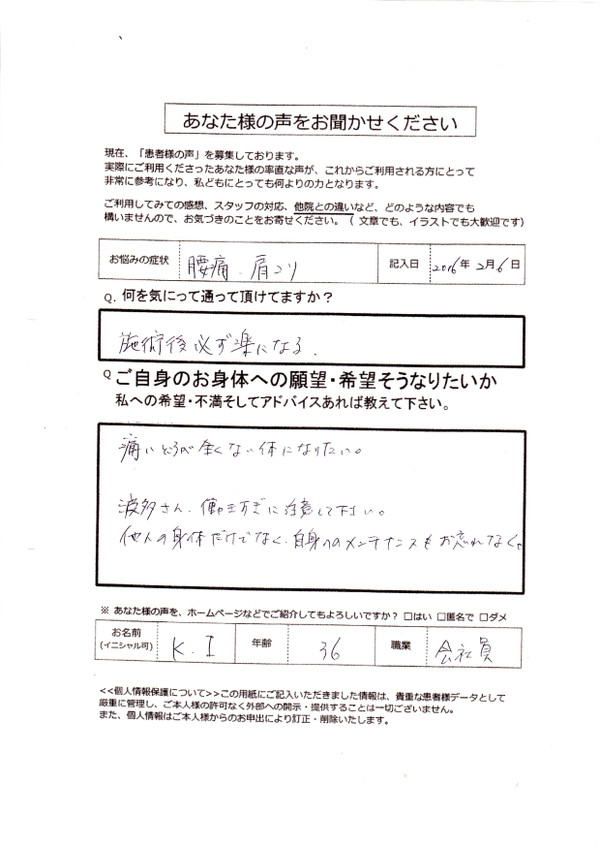 あなた様の声をお聞かせください
現在、「患者様の声」を募集しております。
実際にご利用くださったあなた様の率直な声が、これからご利用される方にとって
非常に参考になり、私どもにとっても何よりの力となります。
ご利用してみての感想、スタッフの対応、他院との違いなど、どのような内容でも
構いませんので、お気づきのことをお寄せください。（ 文章でも、イラストでも大歓迎です）
お悩みの症状 腰痛、肩コリ 記入日 2016年 2月6日
Q. 何を気にって通って頂けてますか？
施術後必ず楽になる.
Q ご自身のお身体への願望・希望そうなりたいか
私への希望・不満そしてアドバイスあれば教えて下さい。
痛いところが全くない体になりたい。
波多さん、働きすぎに注意して下さい。
他人の身体だけでなく、自身へのメンテナンスもお忘れなく。
※ あなた様の声を、ホームページなどでご紹介してもよろしいですか？ □はい □匿名で □ダメ
お名前 K. I 年齢 36 職業 会社員
(イニシャル可)
<<個人情報保護について>>この用紙にご記入いただきました情報は、貴重な患者様データとして
厳重に管理し、ご本人様の許可なく外部への開示・提供することは一切ございません。
また、個人情報はご本人様からのお申出により訂正・削除いたします。